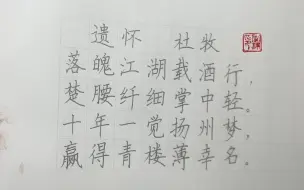 遗怀 杜牧
落魄江湖载酒行，
楚腰纤细掌中轻。
十年一觉扬州梦，
赢得青楼薄幸名。